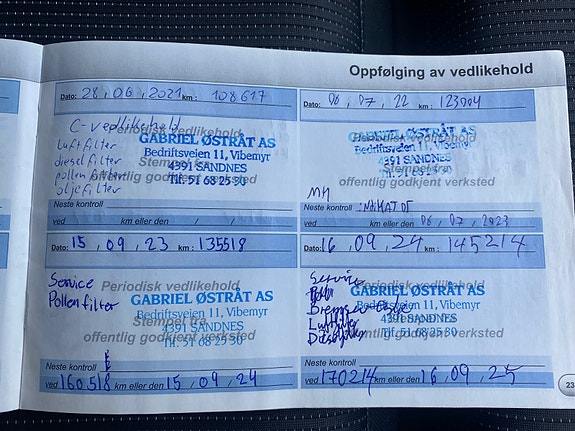 Oppfølging av vedlikehold
Dato: 28, 06, 2021 km: 108617
C-vedlikehold
Periodisk vedlikehold
luftfilter
GABRIEL ØSTRÅT AS
dieselfilter
Bedriftsveien 11, Vibemyr
Stempel fra
pollen filter
4391 SANDNES
offentlig godkjent verksted
oljefilter
Tlf. 51 68 25 30
Neste kontroll
ved km eller den / /
Dato: 06, 07, 22 km: 123004
Periodisk vedlikehold
GABRIEL ØSTRÅT AS
Bedriftsveien 11, Vibemyr
4391 SANDNES
Tlf. 51 68 25 30
offentlig godkjent verksted
Neste kontroll
ved km eller den 06, 07, 2023
Dato: 15, 09, 23 km: 135518
Service
Periodisk vedlikehold
Pollenfilter
GABRIEL ØSTRÅT AS
Bedriftsveien 11, Vibemyr
Stempel fra
4391 SANDNES
offentlig godkjent verksted
Tlf. 51 68 25 30
Neste kontroll
ved 160518 km eller den 15, 09, 24
Dato: 16, 09, 24 km: 145214
Service
Periodisk vedlikehold
GABRIEL ØSTRÅT AS
Bedriftsveien 11, Vibemyr
4391 SANDNES
offentlig godkjent verksted
Tlf. 51 68 25 30
Neste kontroll
ved 170214 km eller den 16, 09, 25
23